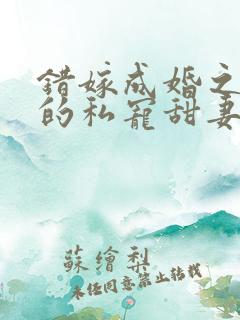 錯嫁成婚之
的私寵甜妻
蘇繪梨
未经同意禁止转载